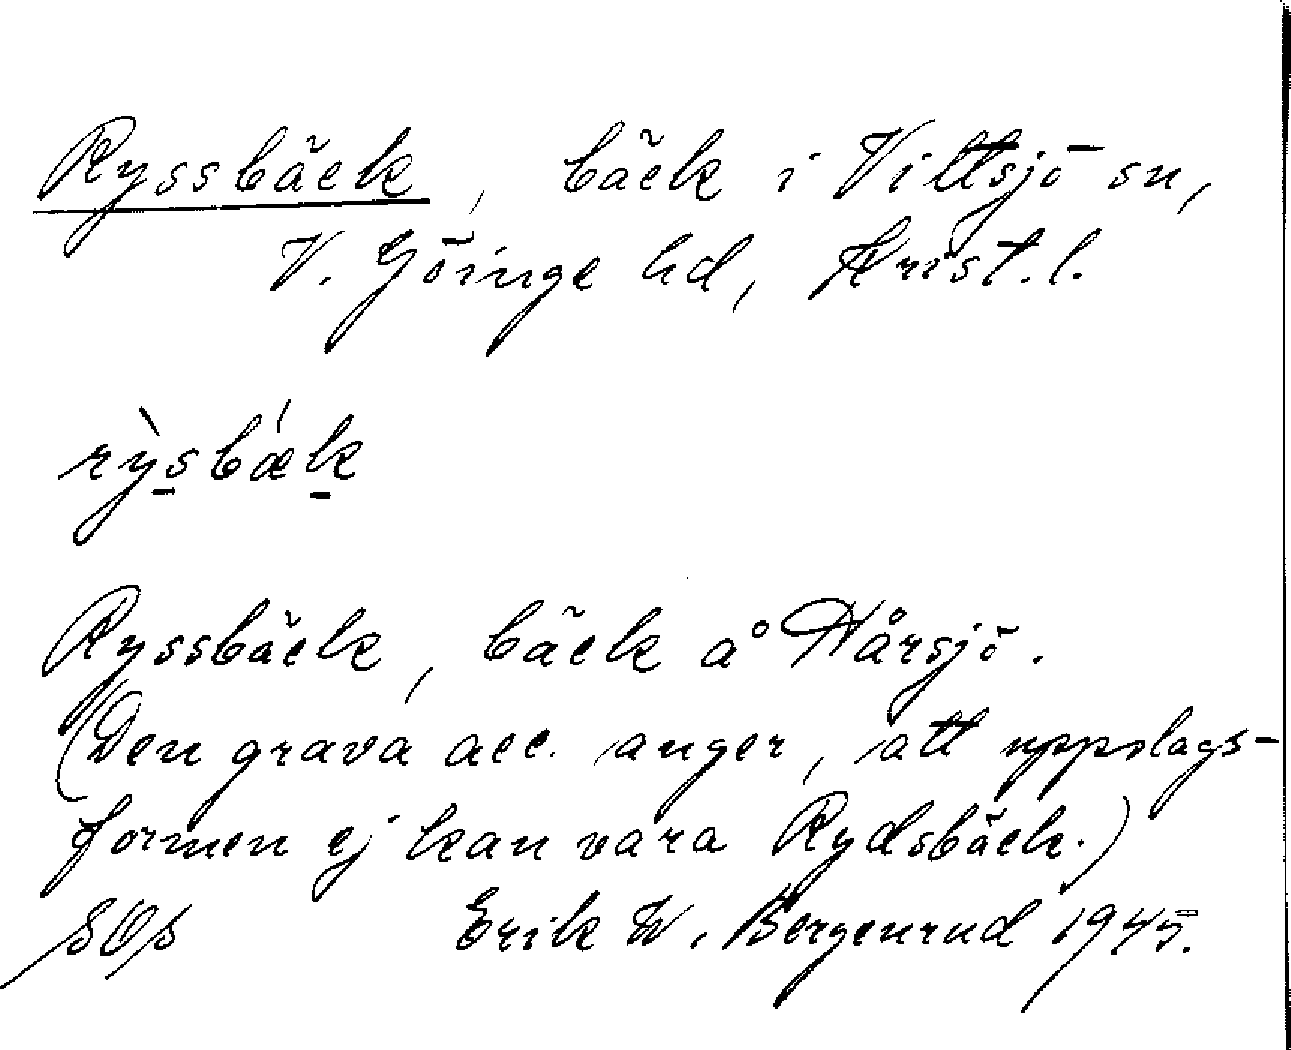 Ryssbäck, bäck i Vittsjö sn,
V. Göinge hd, Krist. l.
rỳsbǽk
Ryssbäck, bäck å Hårsjö.
(Den grava acc. anger, att uppslags-
formen ej kan vara Rydsbäck.)
Erik W. Bergenrud 1945.